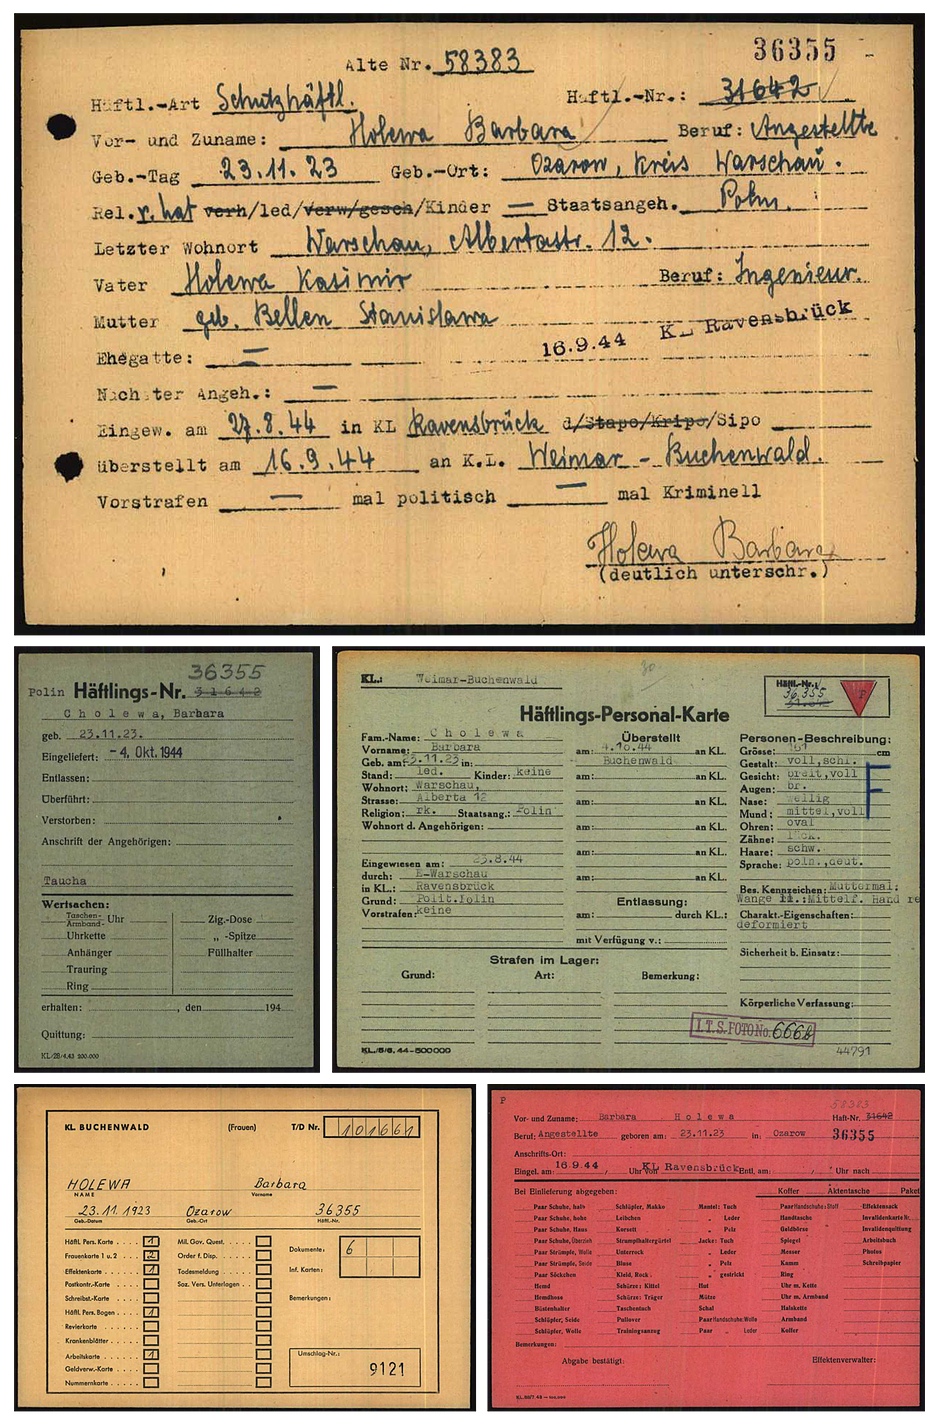 36355 -
Alte Nr. 58383
Häftl.-Art Schutzhäftl. Häftl.-Nr.: 31642
Vor- und Zuname: Holewa Barbara Beruf: Angestellte
Geb.-Tag 23.11.23 Geb.-Ort: Ozarow, Kreis Warschau.
Rel. r. kat verh/led/verw/gesch/Kinder — Staatsangeh. Polin.
Letzter Wohnort Warschau, Albertastr. 12.
Vater Holewa Kasimir Beruf: Ingenieur.
Mutter geb. Bellen Stanislawa
16.9.44 KL Ravensbrück
Ehegatte: —
Nächster Angeh.: —
Eingew. am 27.8.44 in KL Ravensbrück d/Stapo/Kripo/Sipo
überstellt am 16.9.44 an K.L. Weimar - Buchenwald.
Vorstrafen — mal politisch — mal Kriminell
Holewa Barbara
(deutlich unterschr.)
36355
Polin Häftlings-Nr. 31642
Cholewa, Barbara
geb. 23.11.23.
Eingeliefert: - 4. Okt. 1944
Entlassen:
Überführt:
Verstorben:
Anschrift der Angehörigen:
Taucha
Wertsachen:
Taschen- Armband- Uhr Zig.-Dose
Uhrkette „ -Spitze
Anhänger Füllhalter
Trauring
Ring
erhalten: , den 194
Quittung:
KL/28/4.43 500.000
30.
KL.: Weimar-Buchenwald
Häftl.-Nr.
36355
P
Häftlings-Personal-Karte
Fam.-Name: Cholewa
Vorname: Barbara
Geb. am 23.11.23 in:
Stand: led. Kinder: keine
Wohnort: Warschau,
Strasse: Alberta 12
Religion: rk. Staatsang.: Polin
Wohnort d. Angehörigen:
Eingewiesen am: 23.8.44
durch: E-Warschau
in KL.: Ravensbrück
Grund: Polit.Polin
Vorstrafen: keine
Überstellt
am: 4.10.44 an KL.
Buchenwald
am: an KL.
am: an KL.
am: an KL.
am: an KL.
am: an KL.
Entlassung:
am: durch KL.:
mit Verfügung v.:
Personen-Beschreibung:
Grösse: 161 cm
Gestalt: voll,schl.
Gesicht: breit,voll
Augen: br.
Nase: wellig
Mund: mittel,voll
Ohren: oval
Zähne: lück.
Haare: schw.
Sprache: poln.,deut.
Bes. Kennzeichen: Muttermal:
Wange li.:Mittelf. Hand re
Charakt.-Eigenschaften:
deformiert
Sicherheit b. Einsatz:
Körperliche Verfassung:
Strafen im Lager:
Grund: Art: Bemerkung:
I.T.S. FOTO No. 6668
KL./5/6. 44-500000
44791
KL BUCHENWALD (Frauen) T/D Nr. 101661
HOLEWA Barbara
NAME Vorname
23.11.1923 Ozarow 36355
Geb.-Datum Geb.-Ort Häftl.-Nr.
Häftl. Pers. Karte 1 Mil. Gov. Quest.
Frauenkarte 1 u. 2 2 Order f. Disp. Dokumente: 6
Effektenkarte 1 Todesmeldung Inf. Karten:
Postkontr.-Karte Soz. Vers. Unterlagen
Schreibst.-Karte Bemerkungen:
Häftl. Pers. Bogen 1
Revierkarte
Krankenblätter
Arbeitskarte 1
Geldverw.-Karte
Nummernkarte
Umschlag-Nr.:
9121
P
58383
Vor- und Zuname: Barbara Holewa Haft-Nr. 31642
Beruf: Angestellte geboren am: 23.11.23 in: Ozarow 36355
Anschrifts-Ort:
Eingel. am: 16.9.44 Uhr von KL Ravensbrück Entl. am: Uhr nach
Bei Einlieferung abgegeben: Koffer Aktentasche Paket
Paar Schuhe, halb Schlüpfer, Makko Mantel: Tuch Paar Handschuhe: Stoff Effektensack
Paar Schuhe, hohe Leibchen „ Leder Handtasche Invalidenkarte Nr.
Paar Schuhe, Haus Korsett „ Pelz Geldbörse Invalidenkarte
Paar Schuhe, Überzieh Strumpfhaltergürtel Jacke: Tuch Spiegel Arbeitsbuch
Paar Strümpfe, Wolle Unterrock „ Leder Messer Photos
Paar Strümpfe, Seide Bluse „ Pelz Kamm Schreibpapier
Paar Söckchen Kleid, Rock „ gestrickt Ring
Hemd Schürze: Kittel Hut Uhr m. Kette
Hemdhose Schürze: Träger Mütze Uhr m. Armband
Büstenhalter Taschentuch Schal Halskette
Schlüpfer, Seide Pullover Paar Handschuhe: Wolle Armband
Schlüpfer, Wolle Trainingsanzug Paar „ Leder Koffer
Bemerkungen:
Abgabe bestätigt: Effektenverwalter: